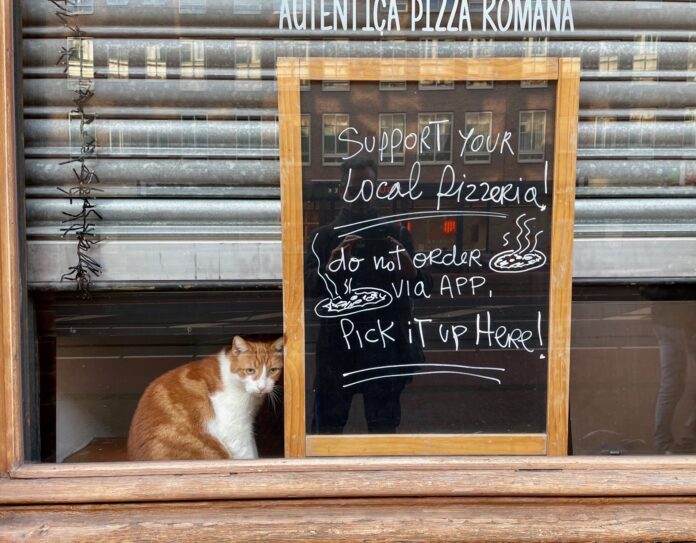 AUTENTICA PIZZA ROMANA
SUPPORT YOUR
Local Pizzeria!
do not order
VIA APP.
PICK iT UP HERe!